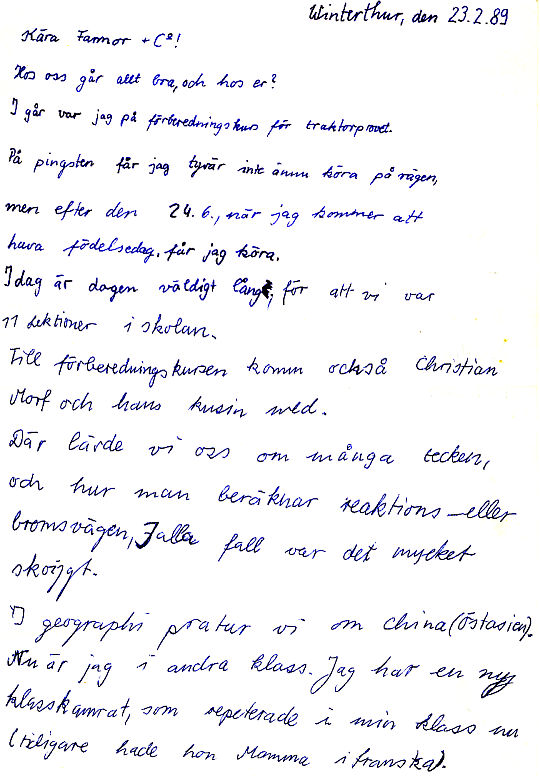 Winterthur, den 23.2.89
Kära Farmor + Co!
Hos oss går allt bra, och hos er?
I går var jag på förberedningskurs för traktorprovet.
På pingsten får jag tyvär inte ännu köra på vägen,
men efter den 24.6., när jag kommer att
hava födelsedag, får jag köra.
Idag är dagen väldigt lång, för att vi var
11 Lektioner i skolan.
Till förberedningskursen komm också Christian
Morf och hans kusin med.
Där lärde vi oss om många tecken,
och hur man beräknar reaktions- eller
bromsvägen, Jalla fall var det mycket
skojgt.
I geographi pratur vi om China (Östasien).
Nu är jag i andra klass. Jag har en ny
klasskamrat, som repeterade i min klass nu
(tidigare hade hon Mamma i franska).